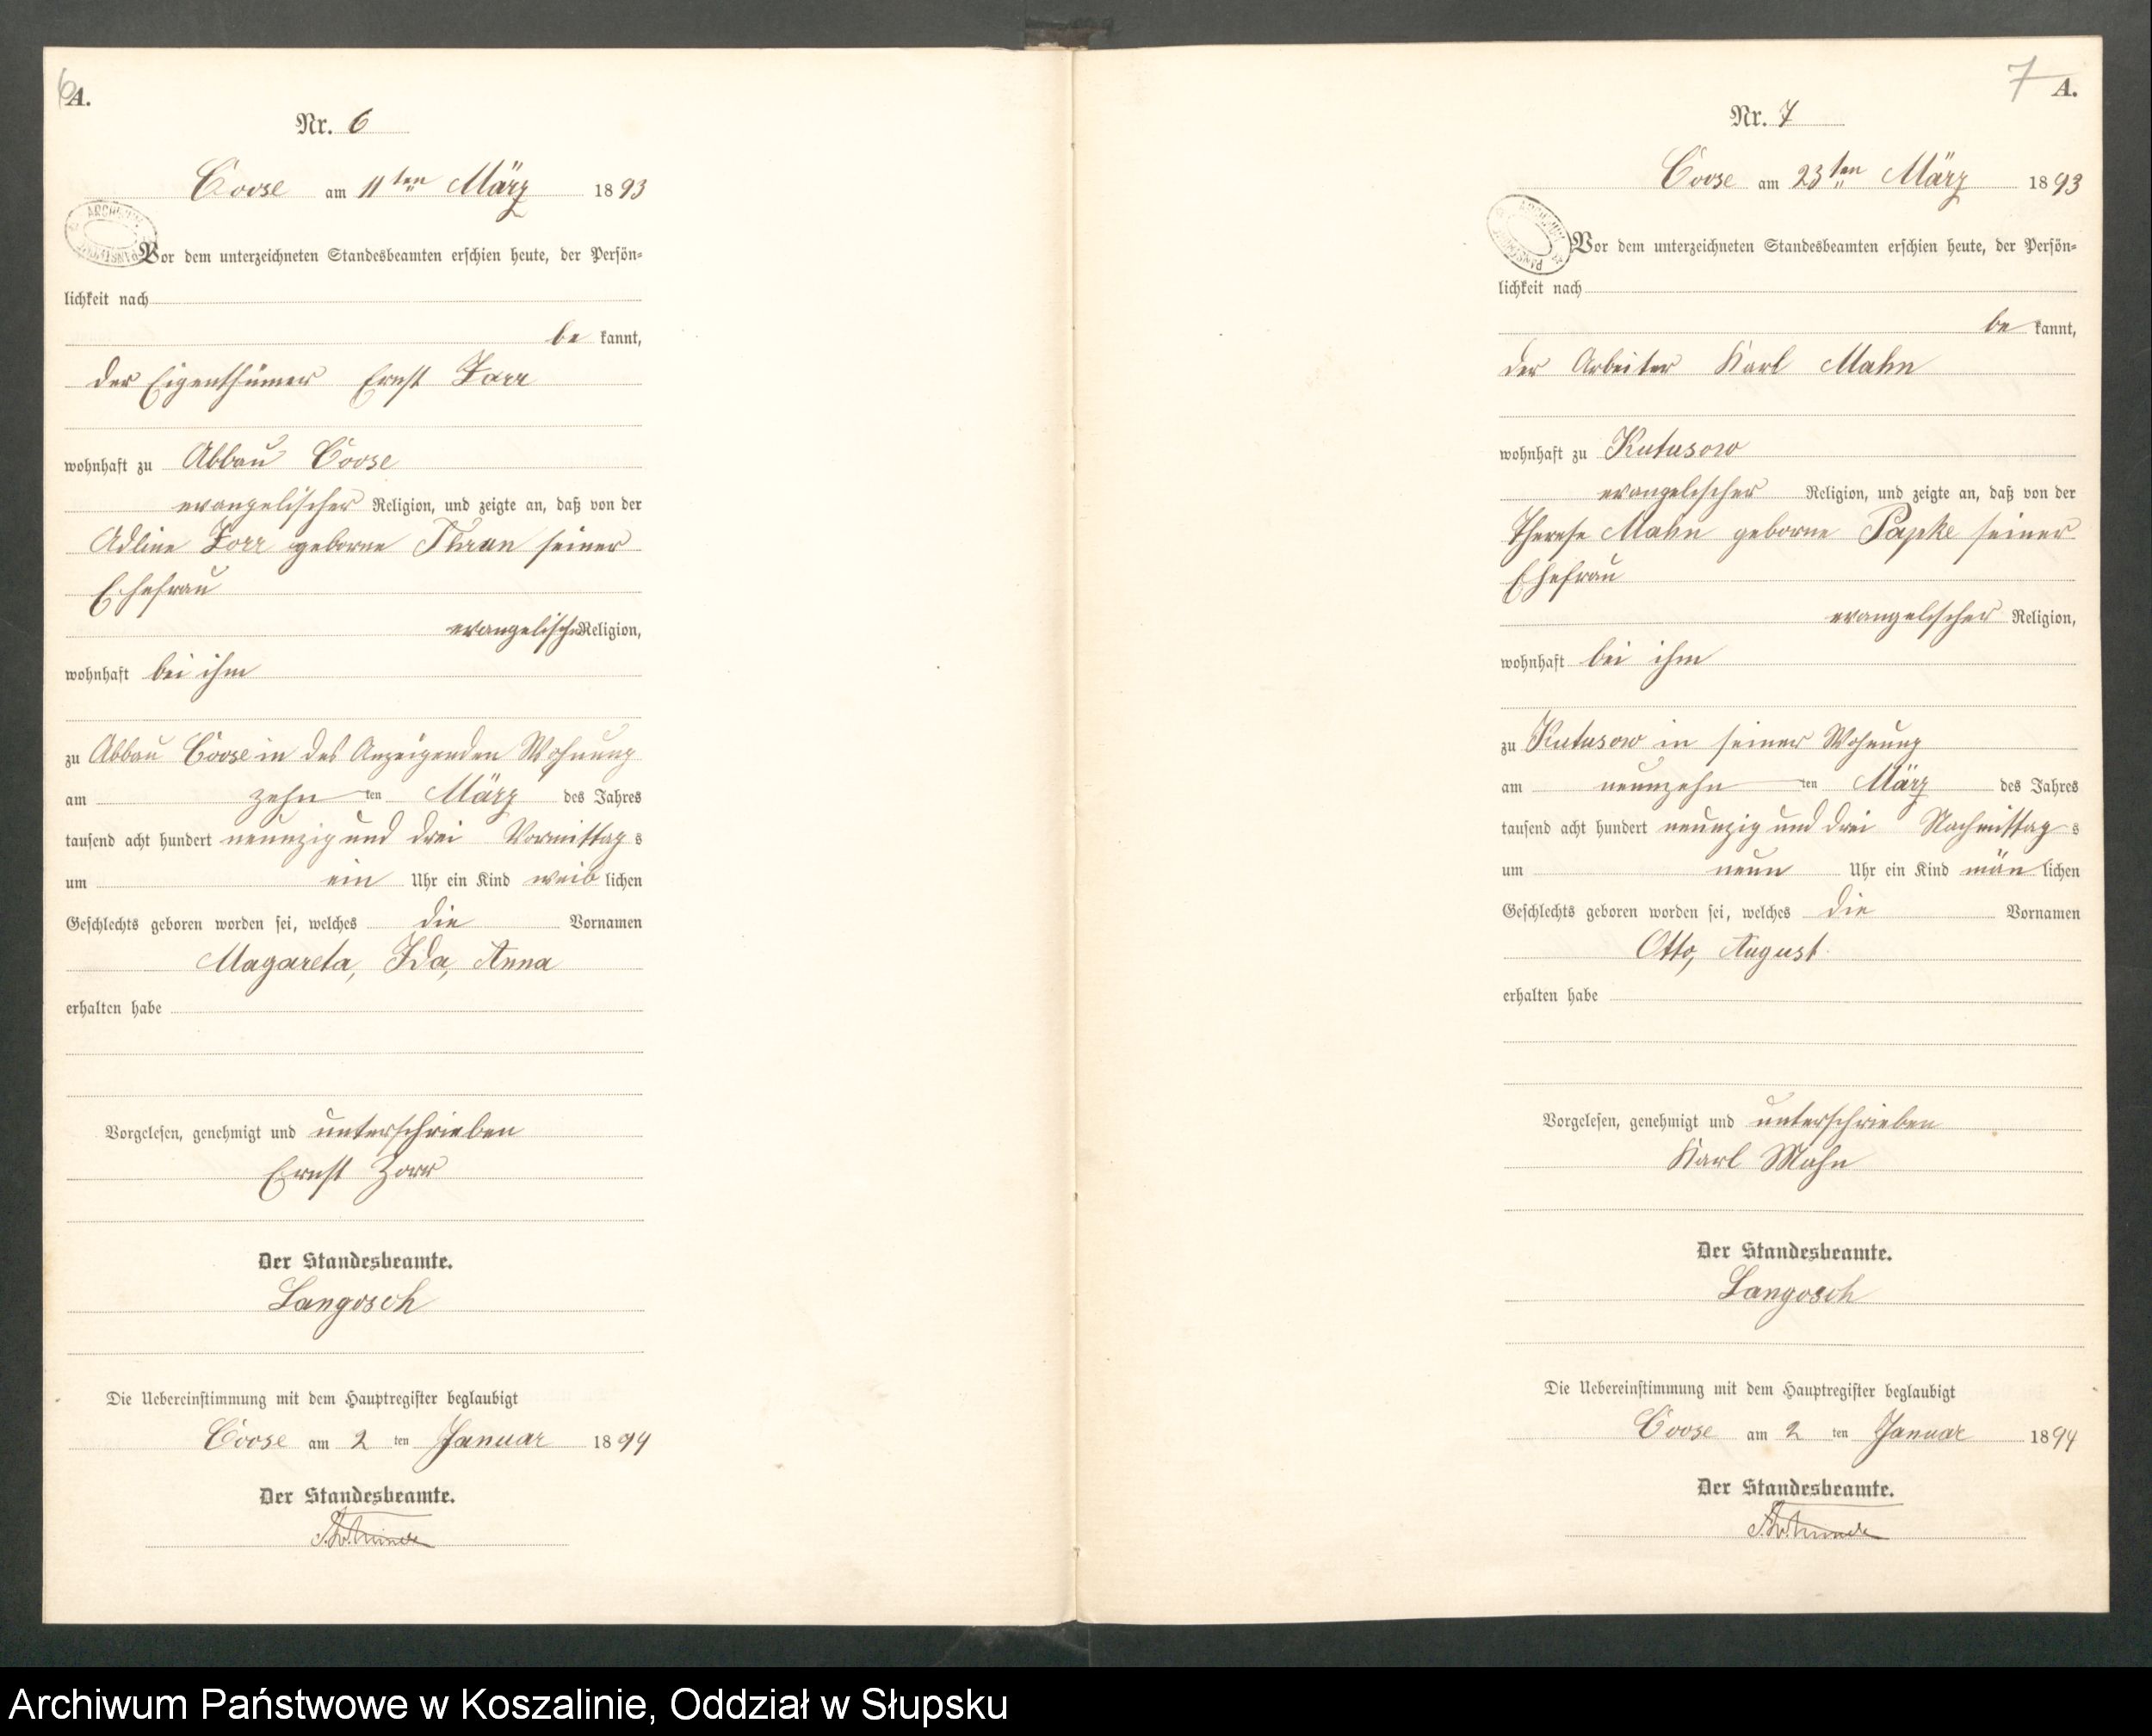 6
A.
Nr. 6
Coose am 11ten März 1893
Vor dem unterzeichneten Standesbeamten erschien heute, der Persön-
lichkeit nach
be kannt,
der Eigenthümer Ernst Zorr
wohnhaft zu Abbau Coose
evangelischer Religion, und zeigte an, daß von der
Adline Zorr geborne Thrun seiner
Ehefrau
evangelischer Religion,
wohnhaft bei ihm
zu Abbau Coose in des Anzeigenden Wohnung
am zehn ten März des Jahres
tausend acht hundert neunzig und drei Vormittag s
um ein Uhr ein Kind weib lichen
Geschlechts geboren worden sei, welches die Vornamen
Magareta, Ida, Anna
erhalten habe
Vorgelesen, genehmigt und unterschrieben
Ernst Zorr
Der Standesbeamte.
Langosch
Die Uebereinstimmung mit dem Hauptregister beglaubigt
Coose am 2 ten Januar 1894
Der Standesbeamte.
7
A.
Nr. 7
Coose am 23ten März 1893
Vor dem unterzeichneten Standesbeamten erschien heute, der Persön-
lichkeit nach
be kannt,
der Arbeiter Karl Mahn
wohnhaft zu Kutusow
evangelischer Religion, und zeigte an, daß von der
Therese Mahn geborne Papke seiner
Ehefrau
evangelischer Religion,
wohnhaft bei ihm
zu Kutusow in seiner Wohnung
am neunzehn ten März des Jahres
tausend acht hundert neunzig und drei Nachmittag s
um neun Uhr ein Kind män lichen
Geschlechts geboren worden sei, welches die Vornamen
Otto, August
erhalten habe
Vorgelesen, genehmigt und unterschrieben
Karl Mahn
Der Standesbeamte.
Langosch
Die Uebereinstimmung mit dem Hauptregister beglaubigt
Coose am 2 ten Januar 1894
Der Standesbeamte.
Archiwum Państwowe w Koszalinie, Oddział w Słupsku